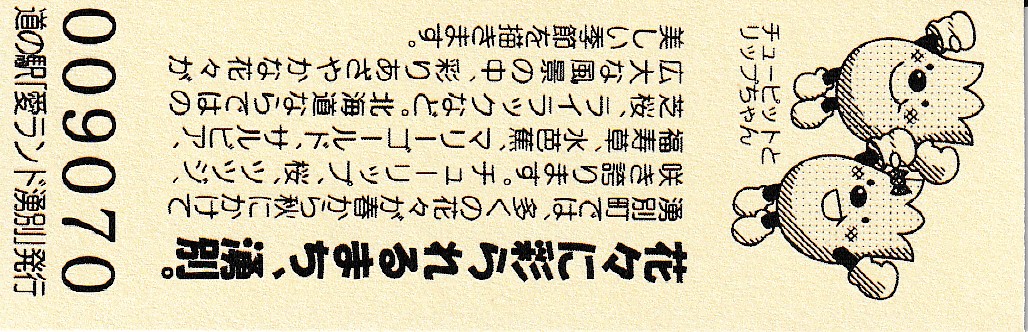 花々に彩られるまち、湧別。
湧別町では、多くの花々が春から秋にかけて
咲き誇ります。チューリップ、桜、ツツジ、
福寿草、水芭蕉、マリーゴールド、サルビア、
芝桜、ライラックなど。北海道ならではの
広大な風景の中、彩りあざやかな花々が
美しい季節を描きます。
チューピットと
リップちゃん
009070
道の駅「愛ランド湧別」発行